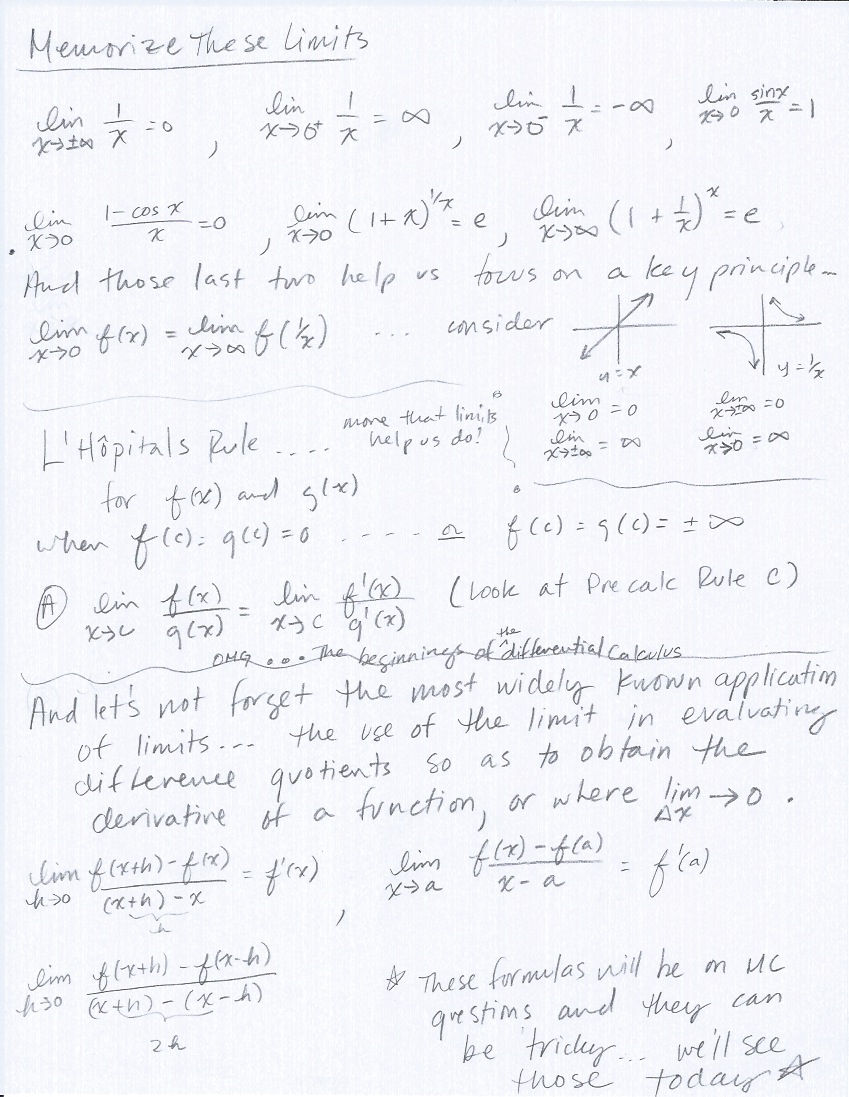 Memorize These Limits
lim x→±∞ 1/x = 0 , lim x→0⁺ 1/x = ∞ , lim x→0⁻ 1/x = -∞ , lim x→0 sinx/x = 1
lim x→0 1-cos x/x = 0 , lim x→0 (1+x)^1/x = e , lim x→∞ (1 + 1/x)^x = e
And those last two help us focus on a key principle...
lim x→0 f(x) = lim x→∞ f(1/x) ... consider
y = x
y = 1/x
lim x→0 = 0
lim x→±∞ = 0
lim x→±∞ = ∞
lim x→0 = ∞
L'Hôpitals Rule ....
more that limits
help us do!
for f(x) and g(x)
when f(c) = g(c) = 0 ..... or f(c) = g(c) = ± ∞
(A) lim x→c f(x)/g(x) = lim x→c f'(x)/g'(x) (Look at Precalc Rule C)
OMG ... The beginnings of the differential calculus
And let's not forget the most widely known application
of limits... the use of the limit in evaluating
difference quotients so as to obtain the
derivative of a function, or where lim Δx → 0 .
lim h→0 f(x+h) - f(x)/(x+h) - x = f'(x) , lim x→a f(x) - f(a)/x - a = f'(a)
h
lim h→0 f(x+h) - f(x-h)/(x+h) - (x-h)
2h
☆ These formulas will be on MC
questions and they can
be tricky... we'll see
those today ☆